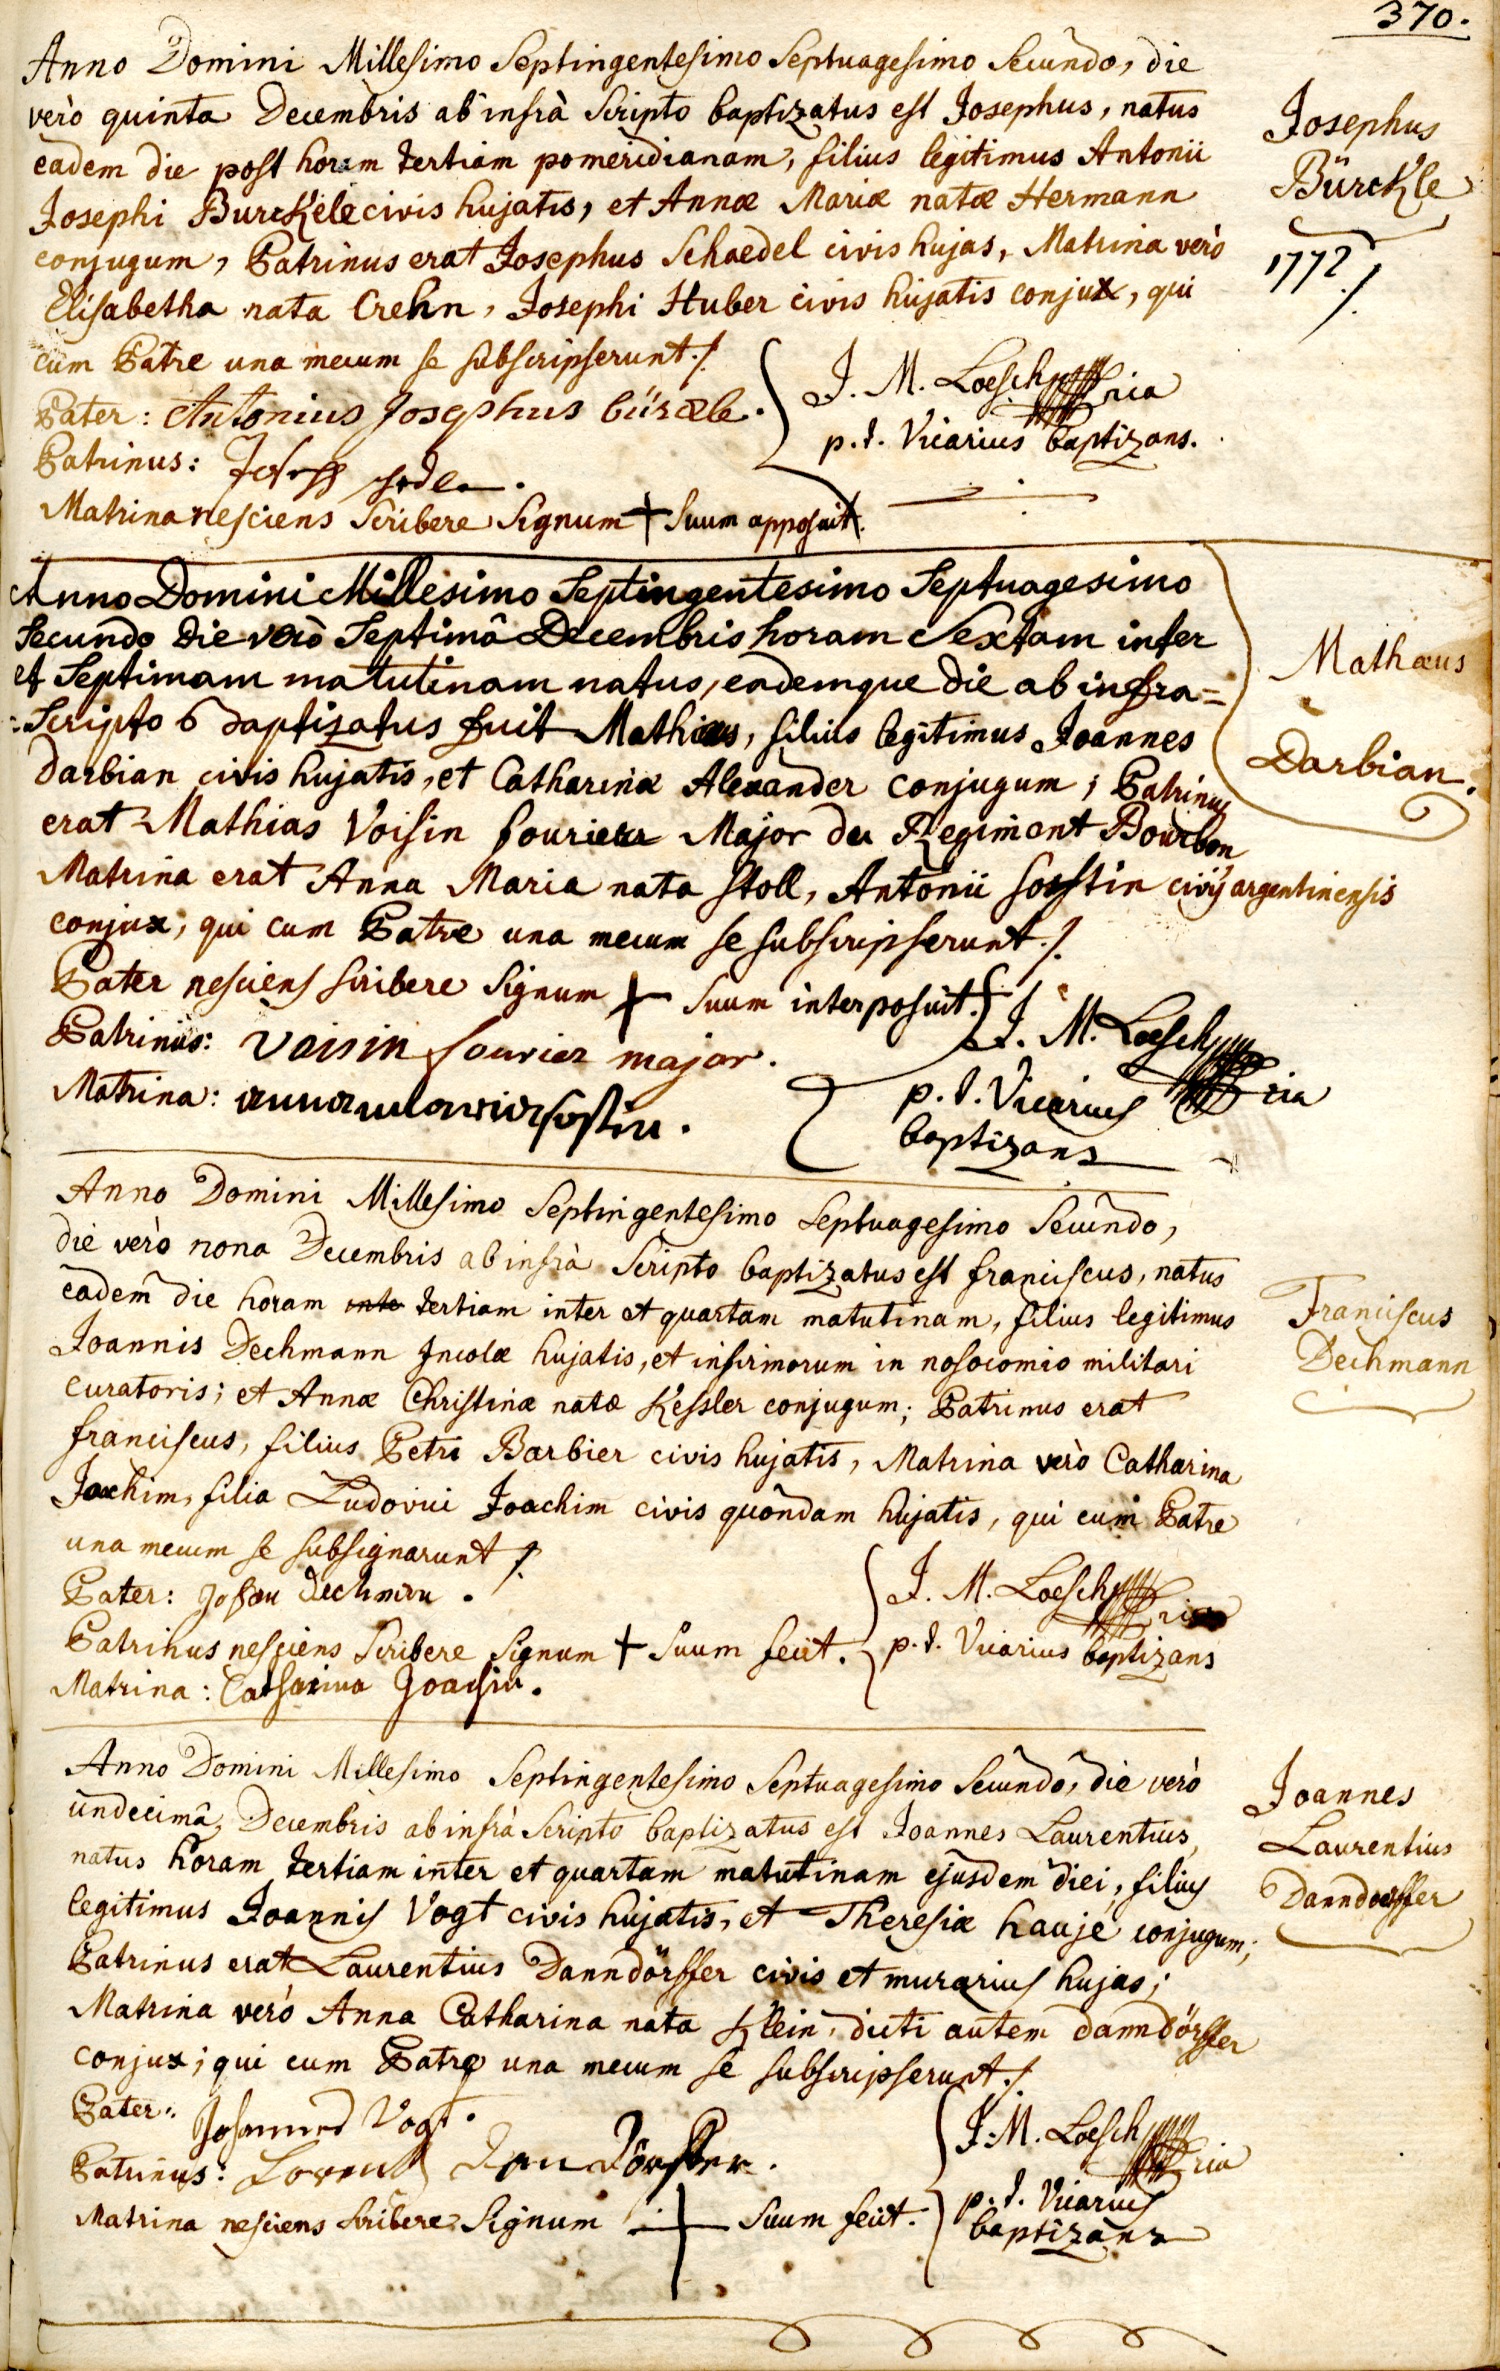 370.
Anno Domini Millesimo Septingentesimo Septuagesimo Secundo, die
verò quinta Decembris ab infrà Scripto baptizatus est Josephus, natus
eadem die post horam tertiam pomeridianam, filius legitimus Antonii
Josephi Burckele civis hujatis, et Annæ Mariæ natæ Hermann
conjugum, Patrinus erat Josephus Schaedel civis hujas, Matrina verò
Elisabetha nata Crehn, Josephi Huber civis hujatis conjux, qui
cum Patre una mecum se subscripserunt./.
Josephus
Bürckle
1772./.
Pater: Antonius Josephus bürckle.
Patrinus: Joseph
Matrina nesciens Scribere Signum + Suum apposuit.
J. M. Loesch
p.t. Vicarius baptizans.
Anno Domini Millesimo Septingentesimo Septuagesimo
Secundo die verò Septimâ Decembris horam Sextam inter
et Septimam matutinam natus, eademque die ab infra=
=Scripto baptizatus fuit Mathæus, filius legitimus Joannes
Darbian civis hujatis, et Catharinæ Alexander conjugum; Patrinus
erat Mathias Voisin fourier Major du Regiment Bourbon
Matrina erat Anna Maria nata Stoll, Antonii sosstin civis argentinensis
conjux; qui cum Patre una mecum se subscripserunt./.
Mathæus
Darbian.
Pater nesciens scribere Signum + Suum interposuit.
Patrinus: Voisin fourier major.
Matrina: anna maria sostin.
J. M. Loesch
p.t. Vicarius
baptizans
Anno Domini Millesimo Septingentesimo Septuagesimo Secundo,
die verò nona Decembris ab infrà Scripto baptizatus est franciscus, natus
eadem die horam inte tertiam inter et quartam matutinam, filius legitimus
Joannis Dechmann Incolæ hujatis, et infirmorum in nosocomio militari
curatoris; et Annæ Christinæ natæ Kessler conjugum; Patrinus erat
franciscus, filius Petri Barbier civis hujatis, Matrina verò Catharina
Joachim, filia Ludovici Joachim civis quondam hujatis, qui cum Patre
una mecum se subsignarunt ./.
Franciscus
Dechmann
Pater: Johan Dechman.
Patrinus nesciens Scribere Signum + Suum fecit.
Matrina: Catharina Joachin.
J. M. Loesch
p.t. Vicarius baptizans
Anno Domini Millesimo Septingentesimo Septuagesimo Secundo, die verò
undecimâ, Decembris ab infrà Scripto baptizatus est Joannes Laurentius,
natus horam tertiam inter et quartam matutinam ejusdem diei, filius
legitimus Joannis Vogt civis hujatis, et Theresiæ hauje conjugum;
Patrinus erat Laurentius Danndörffer civis et murarius hujas;
Matrina verò Anna Catharina nata Klein, dicti autem danndörffer
conjux; qui cum Patre una mecum se subscripserunt./.
Joannes
Laurentius
Danndoerffer
Pater: Johannes Vogt.
Patrinus: Lorentz Dandörffer.
Matrina nesciens scribere Signum + Suum fecit.
J. M. Loesch
p.t. Vicarius
baptizans